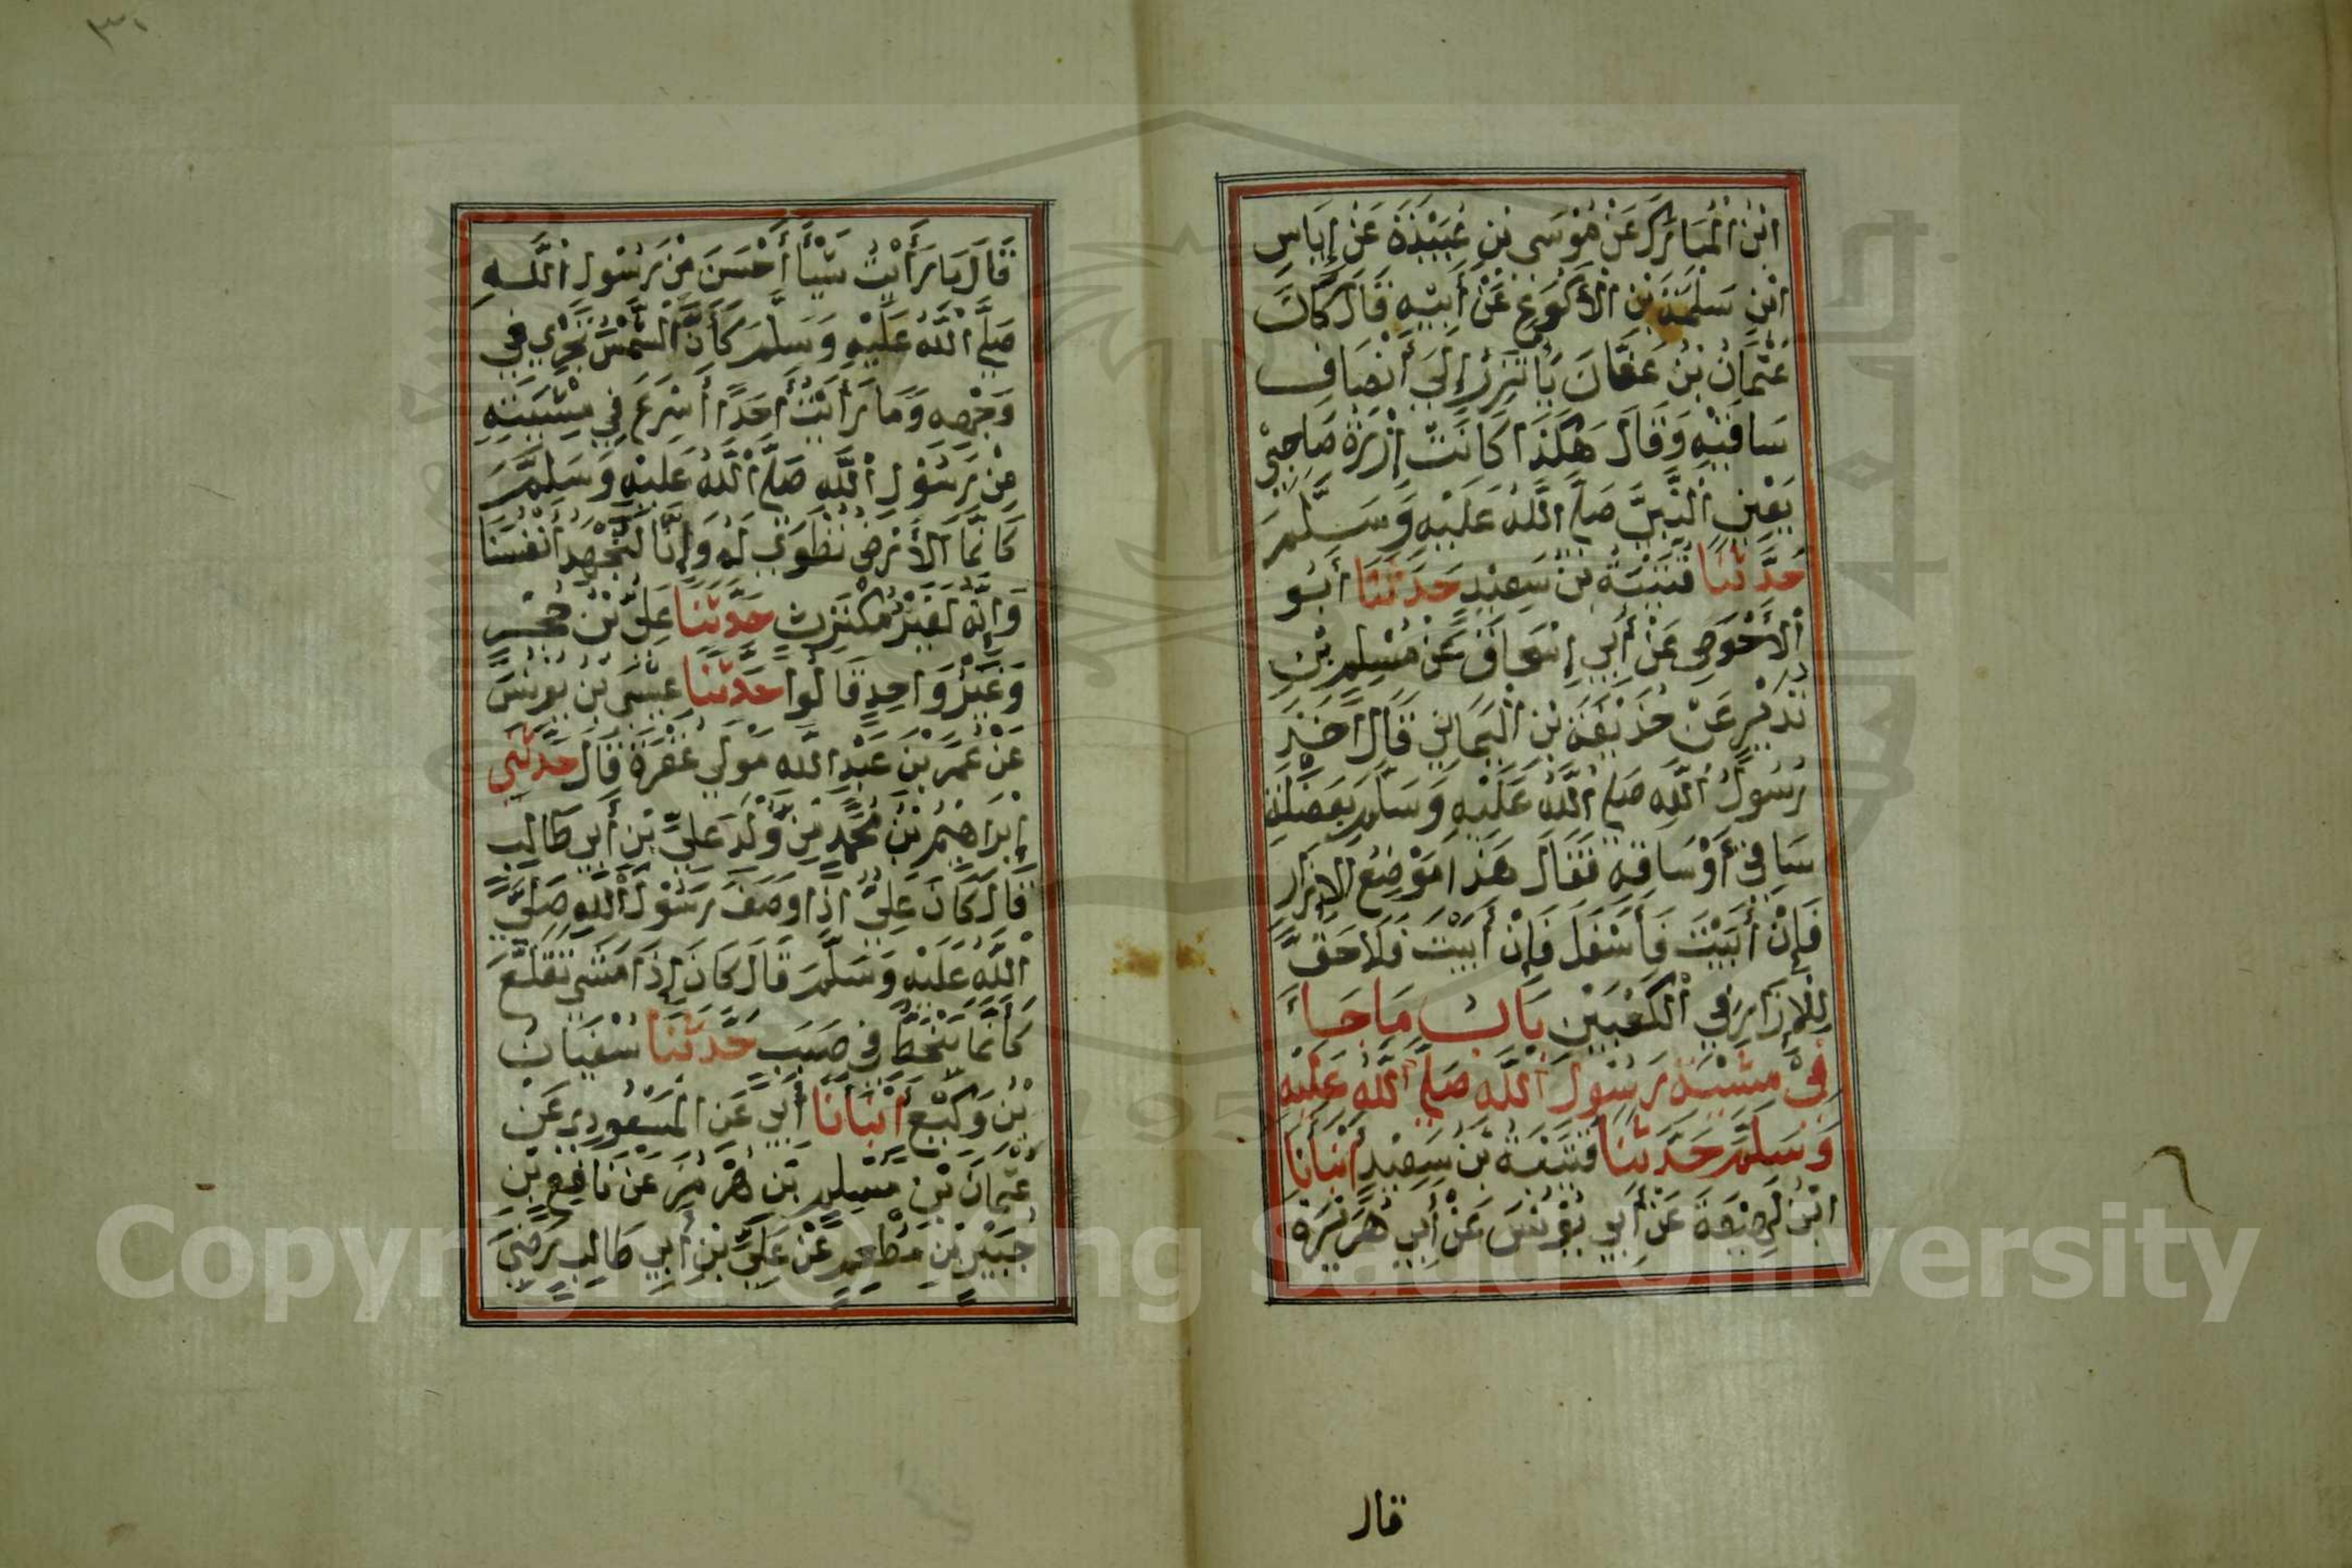 ابْنُ الْمُبَارَكِ عَنْ مُوْسَى بْنِ عُبَيْدَةَ عَنْ إِيَاسِ
ابْنِ سَلَمَةَ بْنِ الْأَكْوَعِ عَنْ أَبِيْهِ قَالَ كَانَ
عُثْمَانُ بْنُ عَفَّانَ يَأْتَزِرُ إِلَى أَنْصَافِ
سَاقَيْهِ وَقَالَ هَكَذَا كَانَتْ إِزْرَةُ صَاحِبِيْ
يَعْنِي النَّبِيَّ صَلَّى اللَّهُ عَلَيْهِ وَسَلَّمَ
حَدَّثَنَا قُتَيْبَةُ بْنُ سَعِيْدٍ حَدَّثَنَا أَبُو
الْأَحْوَصِ عَنْ أَبِي إِسْحَاقَ عَنْ مُسْلِمِ بْنِ
نَذِيْرٍ عَنْ حُذَيْفَةَ بْنِ الْيَمَانِ قَالَ أَخَذَ
رَسُوْلُ اللَّهِ صَلَّى اللَّهُ عَلَيْهِ وَسَلَّمَ بِعَضَلَةِ
سَاقِيْ أَوْ سَاقِهِ فَقَالَ هَذَا مَوْضِعُ الْإِزَارِ
فَإِنْ أَبَيْتَ فَأَسْفَلَ فَإِنْ أَبَيْتَ فَلَا حَقَّ
لِلْإِزَارِ فِي الْكَعْبَيْنِ بَابُ مَا جَاءَ
فِيْ مِشْيَةِ رَسُوْلِ اللَّهِ صَلَّى اللَّهُ عَلَيْهِ
وَسَلَّمَ حَدَّثَنَا قُتَيْبَةُ بْنُ سَعِيْدٍ أَنْبَأَنَا
ابْنُ لَهِيْعَةَ عَنْ أَبِي يُوْنُسَ عَنْ أَبِي هُرَيْرَةَ
قال
٣١
قَالَ مَا رَأَيْتُ شَيْأً أَحْسَنَ مِنْ رَسُوْلِ اللَّهِ
صَلَّى اللَّهُ عَلَيْهِ وَسَلَّمَ كَأَنَّ الشَّمْسَ تَجْرِي فِي
وَجْهِهِ وَمَا رَأَيْتُ أَحَدًا أَسْرَعَ فِي مِشْيَتِهِ
مِنْ رَسُوْلِ اللَّهِ صَلَّى اللَّهُ عَلَيْهِ وَسَلَّمَ
كَانَّمَا الْأَرْضُ تُطْوَى لَهُ وَإِنَّا لَنُجْهِدُ أَنْفُسَنَا
وَإِنَّهُ لَغَيْرُ مُكْتَرِثٍ حَدَّثَنَا عَلِيُّ بْنُ حُجْرٍ
وَغَيْرُ وَاحِدٍ قَالُوا حَدَّثَنَا عِيْسَى بْنُ يُوْنُسَ
عَنْ عُمَرَ بْنِ عَبْدِ اللَّهِ مَوْلَى غُفْرَةَ قَالَ حَدَّثَنِي
إِبْرَاهِيْمُ بْنُ مُحَمَّدٍ مِنْ وُلْدِ عَلِيِّ بْنِ أَبِي طَالِبٍ
قَالَ كَانَ عَلِيٌّ إِذَا وَصَفَ رَسُوْلَ اللَّهِ صَلَّى
اللَّهُ عَلَيْهِ وَسَلَّمَ قَالَ كَانَ إِذَا مَشَى تَقَلَّعَ
كَأَنَّمَا يَنْحَطُّ فِي صَبَبٍ حَدَّثَنَا سُفْيَانُ
بْنُ وَكِيْعٍ أَنْبَأَنَا أَبِي عَنِ الْمَسْعُوْدِي عَنْ
عُثْمَانَ بْنِ مُسْلِمِ بْنِ هُرْمُزَ عَنْ نَافِعِ بْنِ
جُبَيْرِ بْنِ مُطْعِمٍ عَنْ عَلِيِّ بْنِ أَبِي طَالِبٍ رَضِيَ
Copyright © King Saud University
195